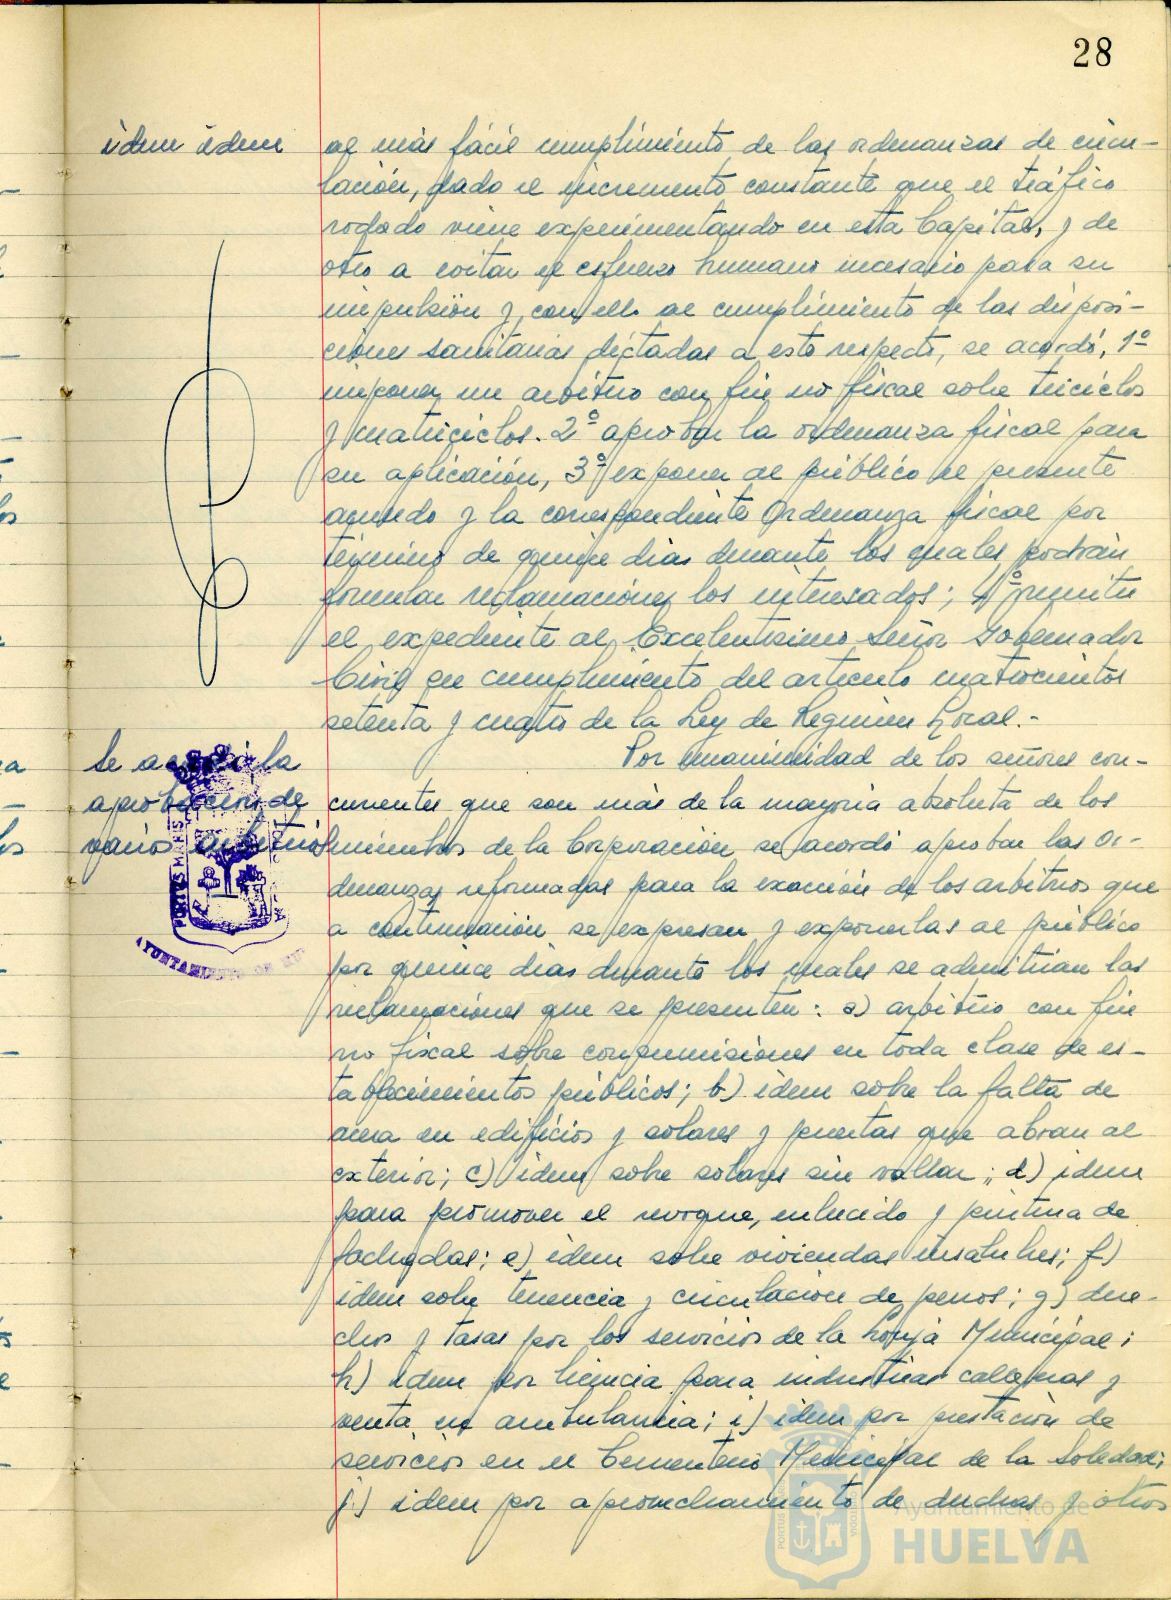 28
idem idem
al más fácil cumplimiento de las ordenanzas de circu-
lación, dado el incremento constante que el tráfico
rodado viene experimentando en esta Capital, y de
otro a evitar el esfuerzo humano necesario para su
impulsión y con ello al cumplimiento de las disposi-
ciones sanitarias dictadas a este respecto, se acordó, 1º
imponer un arbitrio con fin no fiscal sobre triciclos
y cuatriciclos. 2º aprobar la ordenanza fiscal para
su aplicación, 3º exponer al público el presente
acuerdo y la correspondiente Ordenanza fiscal por
término de quince dias durante los cuales podrán
formular reclamaciones los interesados; 4º remitir
el expediente al Excelentísimo Señor Gobernador
Civil en cumplimiento del articulo cuatrocientos
setenta y cuatro de la Ley de Regimen Local.-
Se acordó la
aprobación de
varios arbitrios
Por unanimidad de los señores con-
currentes que son más de la mayoria absoluta de los
miembros de la Corporación se acordó aprobar las or-
denanzas reformadas para la exacción de los arbitrios que
a continuación se expresan y exponerlas al público
por quince dias durante los cuales se admitirian las
reclamaciones que se presenten: a) arbitrio con fin
no fiscal sobre consumisiones en toda clase de es-
tablecimientos públicos; b) idem sobre la falta de
acera en edificios y solares y puertas que abran al
exterior; c) idem sobre solares sin vallar; d) idem
para promover el revoque, enlucido y pintura de
fachadas; e) idem sobre viviendas insalubres; f)
idem sobre tenencia y circulación de perros; g) dere-
chos y tasas por los servicios de la Lonja Municipal;
h) idem por licencia para industrias callejeras y
venta en ambulancia; i) idem por prestación de
servicios en el Cementerio Municipal de la Soledad;
j) idem por aprovechamiento de duchas y otros
PORTUS MARIS
AYUNTAMIENTO DE HU
Ayuntamiento de
HUELVA